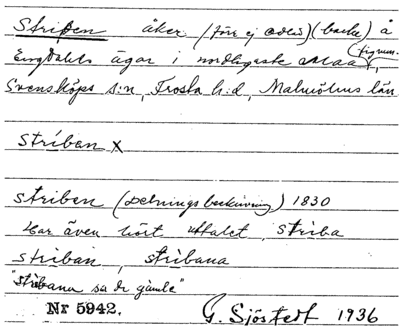 Striben åker (förr ej odlad) (backe) å
Engdahls ägor i nordligaste
Svensköps s:n, Frosta h:d, Malmöhus län
stríban x
striben (Delningsbeskrivning) 1830
Har även hört uttalet striba
striban, stribana
"stribana sa de gamle"
Nr 5942. G. Sjöstedt 1936